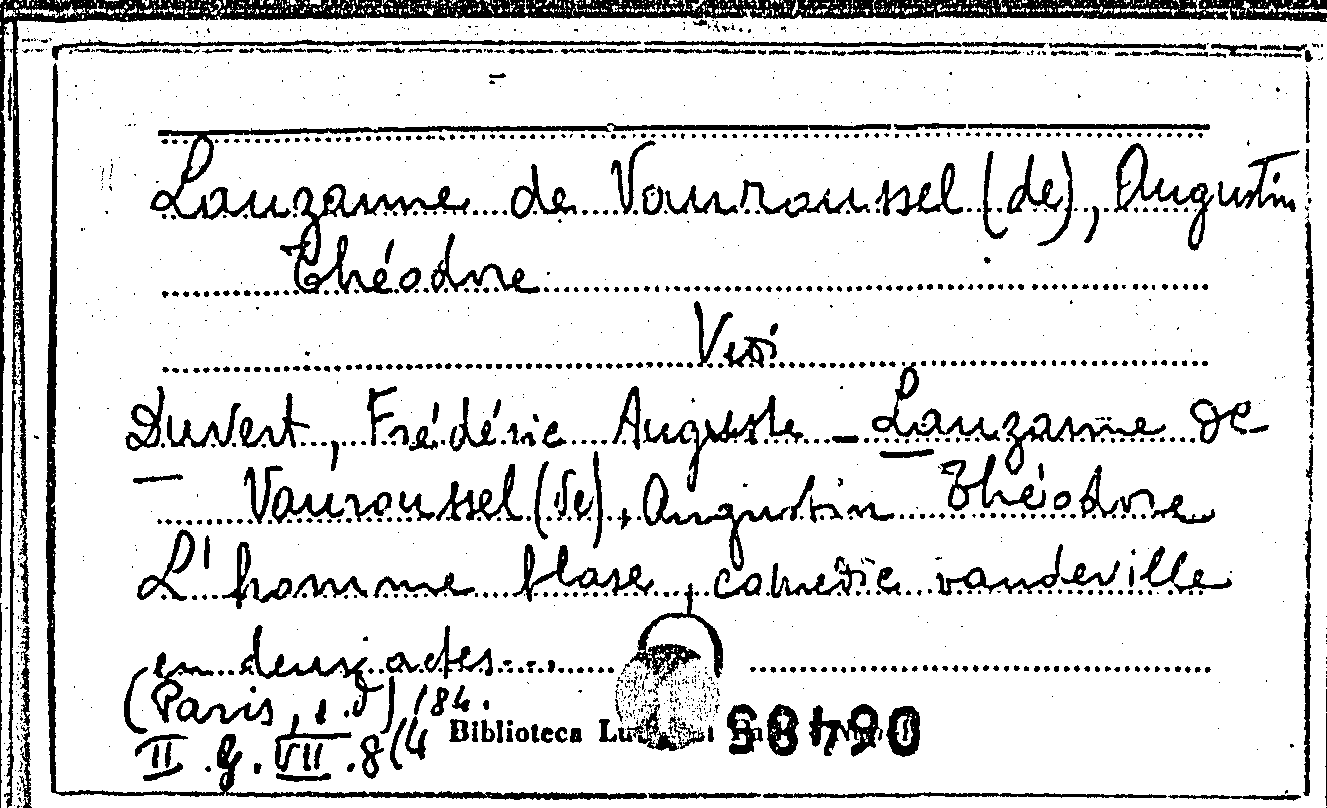 Lauzanne de Vauroussel (de), Augustin
Théodore
Vedi
Duvert, Frédéric Auguste – Lauzanne de
Vauroussel (de), Augustin Théodore
L'homme blase, comedie vaudeville
en deux actes...
(Paris, s.d) 184.
II.G.VII.8(4
Biblioteca